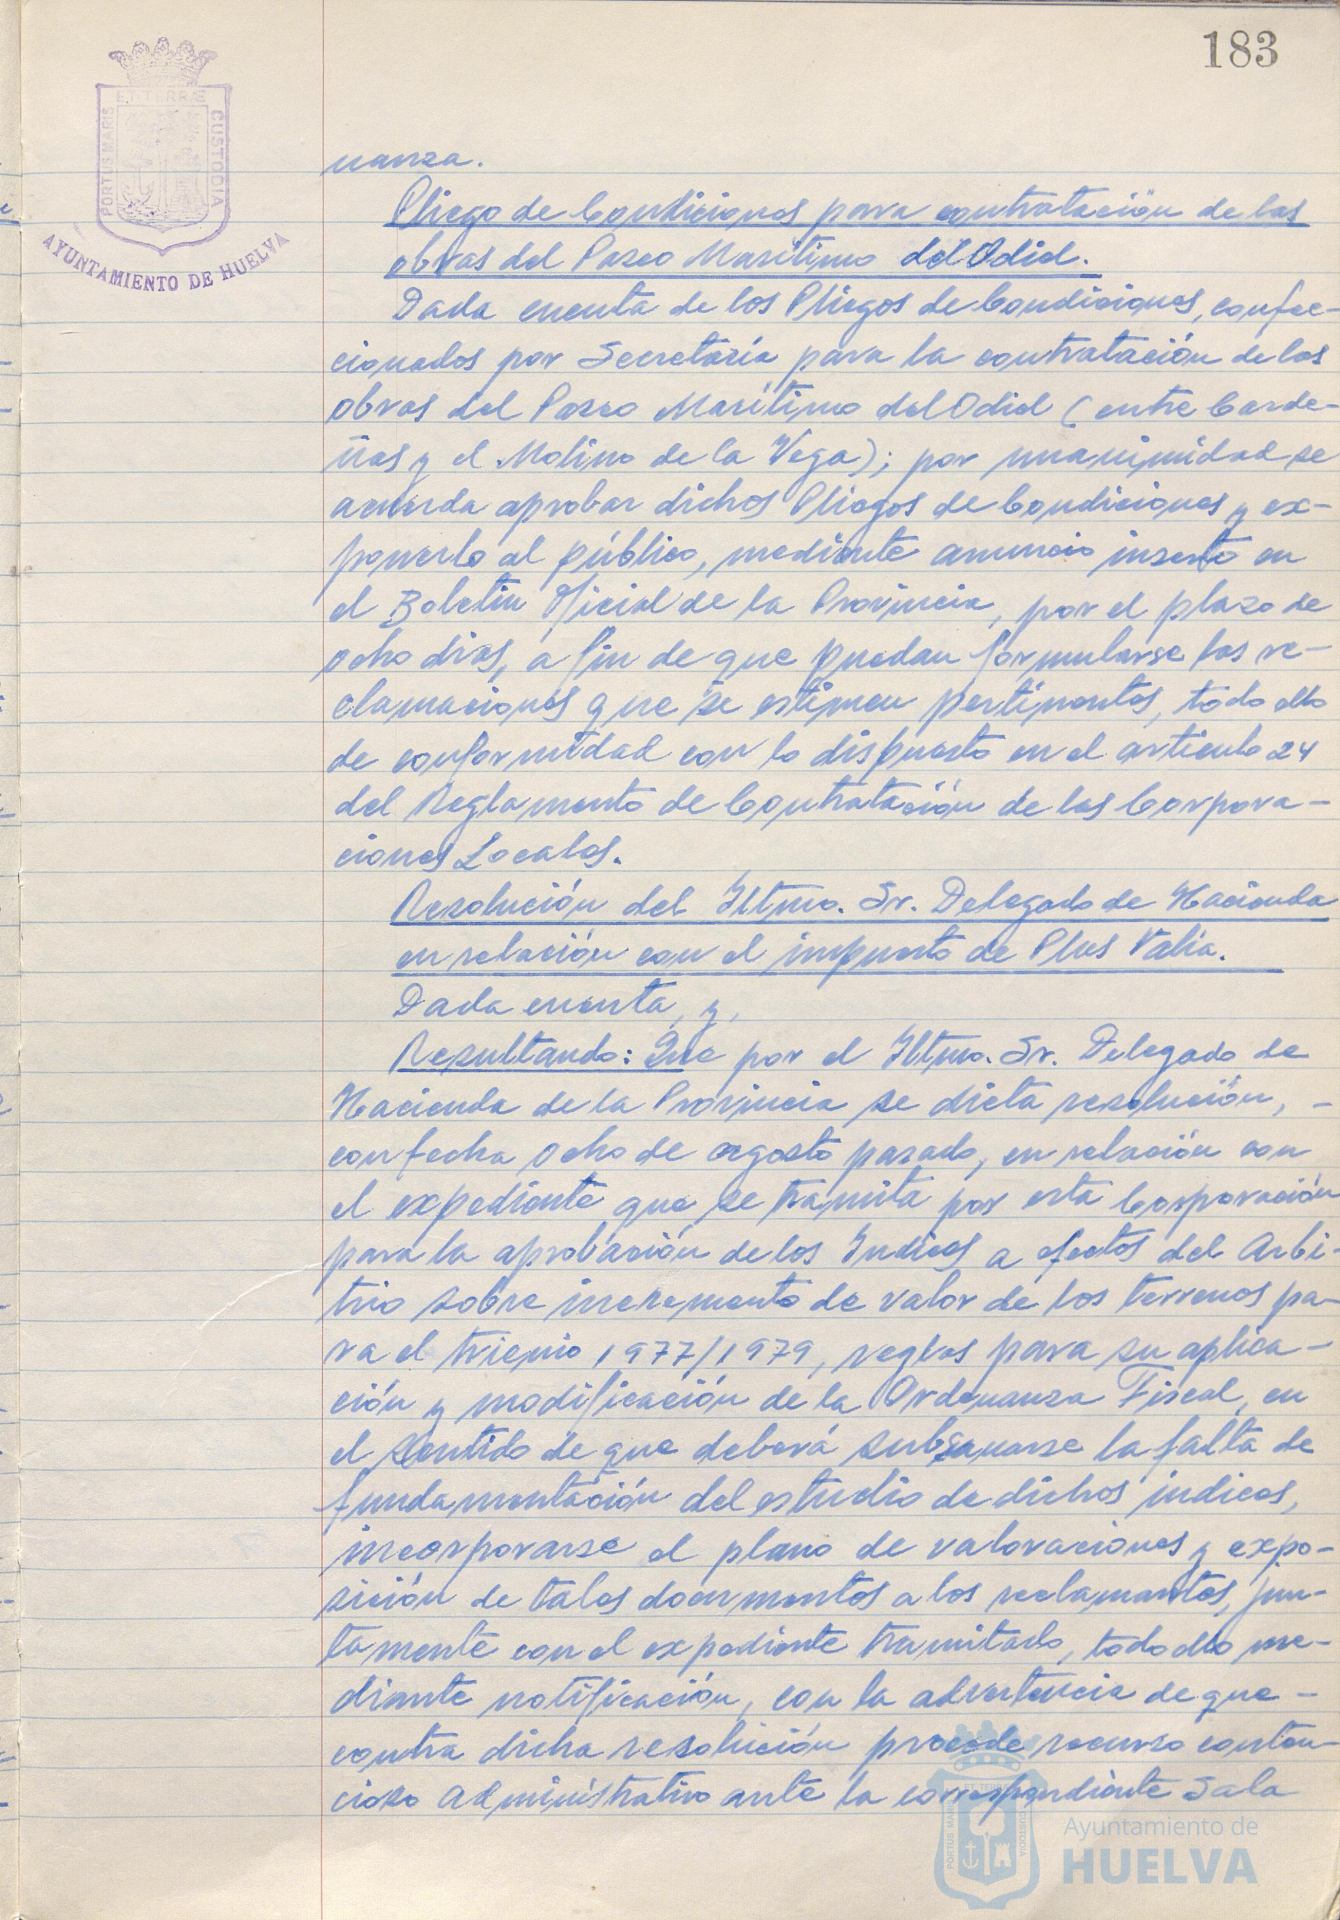 183
ET TERRÆ
PORTUS MARIS
CUSTODIA
AYUNTAMIENTO DE HUELVA
nanza.
Pliego de Condiciones para contratación de las
obras del Paseo Marítimo del Odiel.
Dada cuenta de los Pliegos de Condiciones, confec-
cionados por Secretaría para la contratación de las
obras del Paseo Marítimo del Odiel (entre Carde-
ñas y el Molino de la Vega); por unanimidad se
acuerda aprobar dichos Pliegos de Condiciones y ex-
ponerlo al público, mediante anuncio inserto en
el Boletin Oficial de la Provincia, por el plazo de
ocho dias, a fin de que puedan formularse las re-
clamaciones que se estimen pertinentes, todo ello
de conformidad con lo dispuesto en el articulo 24
del Reglamento de Contratación de las Corpora-
ciones Locales.
Resolución del Iltmo. Sr. Delegado de Hacienda
en relación con el impuesto de Plus Valia.
Dada cuenta, y,
Resultando: Que por el Iltmo. Sr. Delegado de
Hacienda de la Provincia se dicta resolución, -
con fecha ocho de agosto pasado, en relación con
el expediente que se tramita por esta Corporación
para la aprobación de los Indices a efectos del Arbi-
trio sobre incremento de valor de los terrenos pa-
ra el trienio 1977/1979, reglas para su aplica-
ción y modificación de la Ordenanza Fiscal, en
el sentido de que deberá subsanarse la falta de
fundamentación del estudio de dichos indices,
incorporarse el plano de valoraciones y expo-
sición de tales documentos a los reclamantes, jun-
tamente con el expediente tramitado, todo ello me-
diante notificación, con la advertencia de que -
contra dicha resolución procede recurso conten-
cioso administrativo ante la correspondiente Sala
Ayuntamiento de
HUELVA